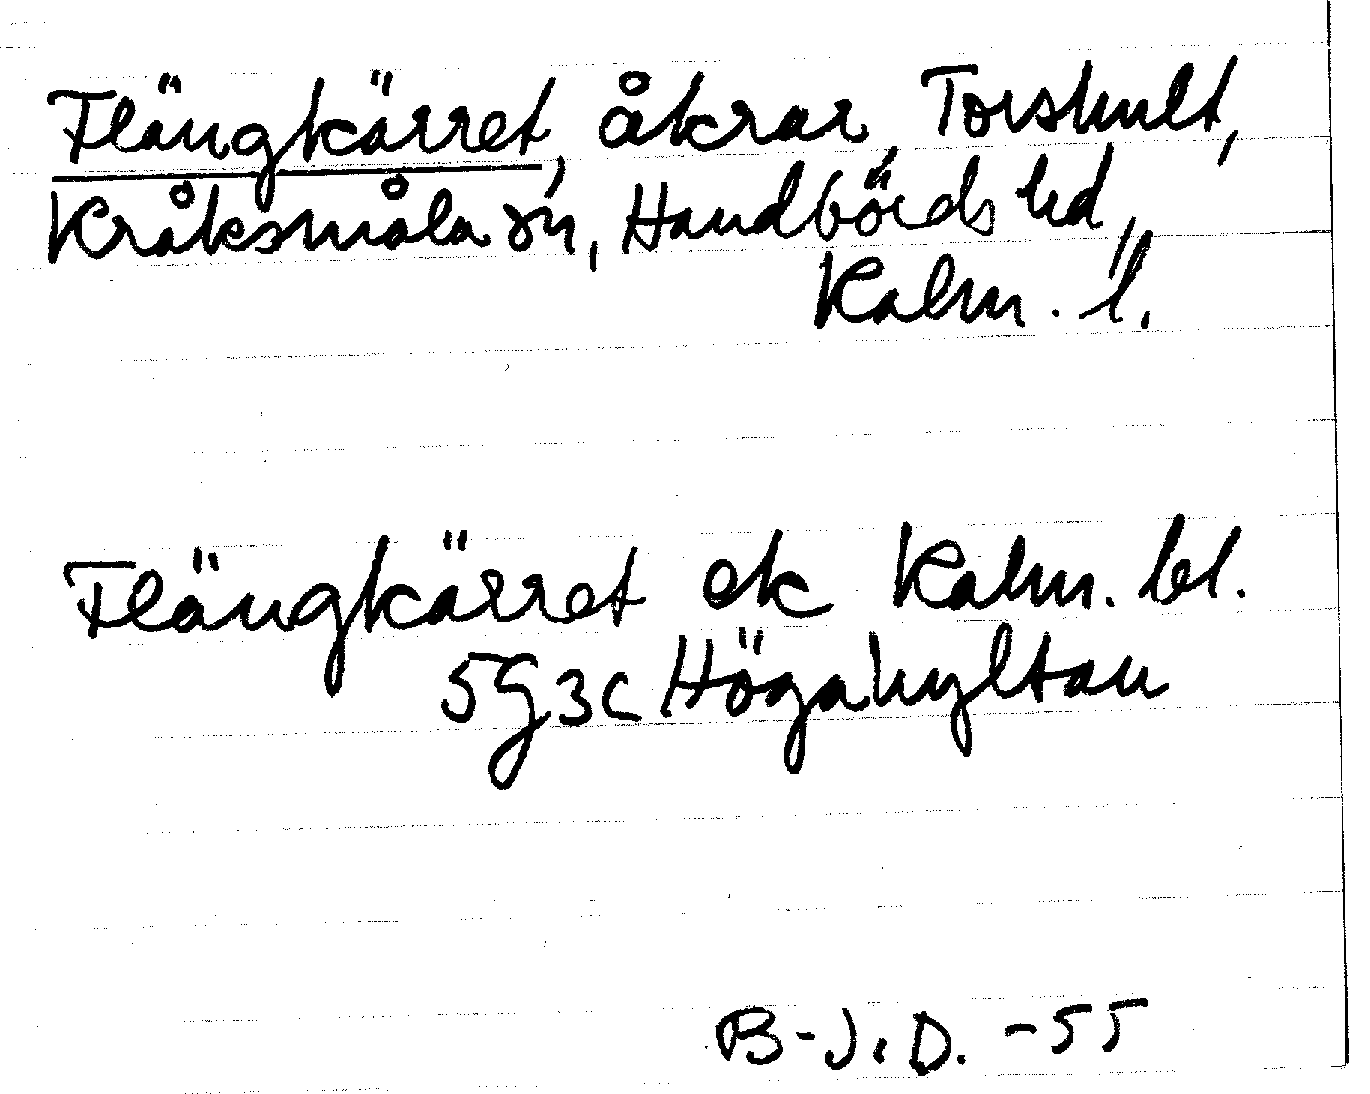 Flängkärret, åkrar, Torshult,
Kråksmåla sn, Handbörds hd,
Kalm. l.
Flängkärret ek Kalm. bl.
5G3c Högahyltan
B-J. D. -55